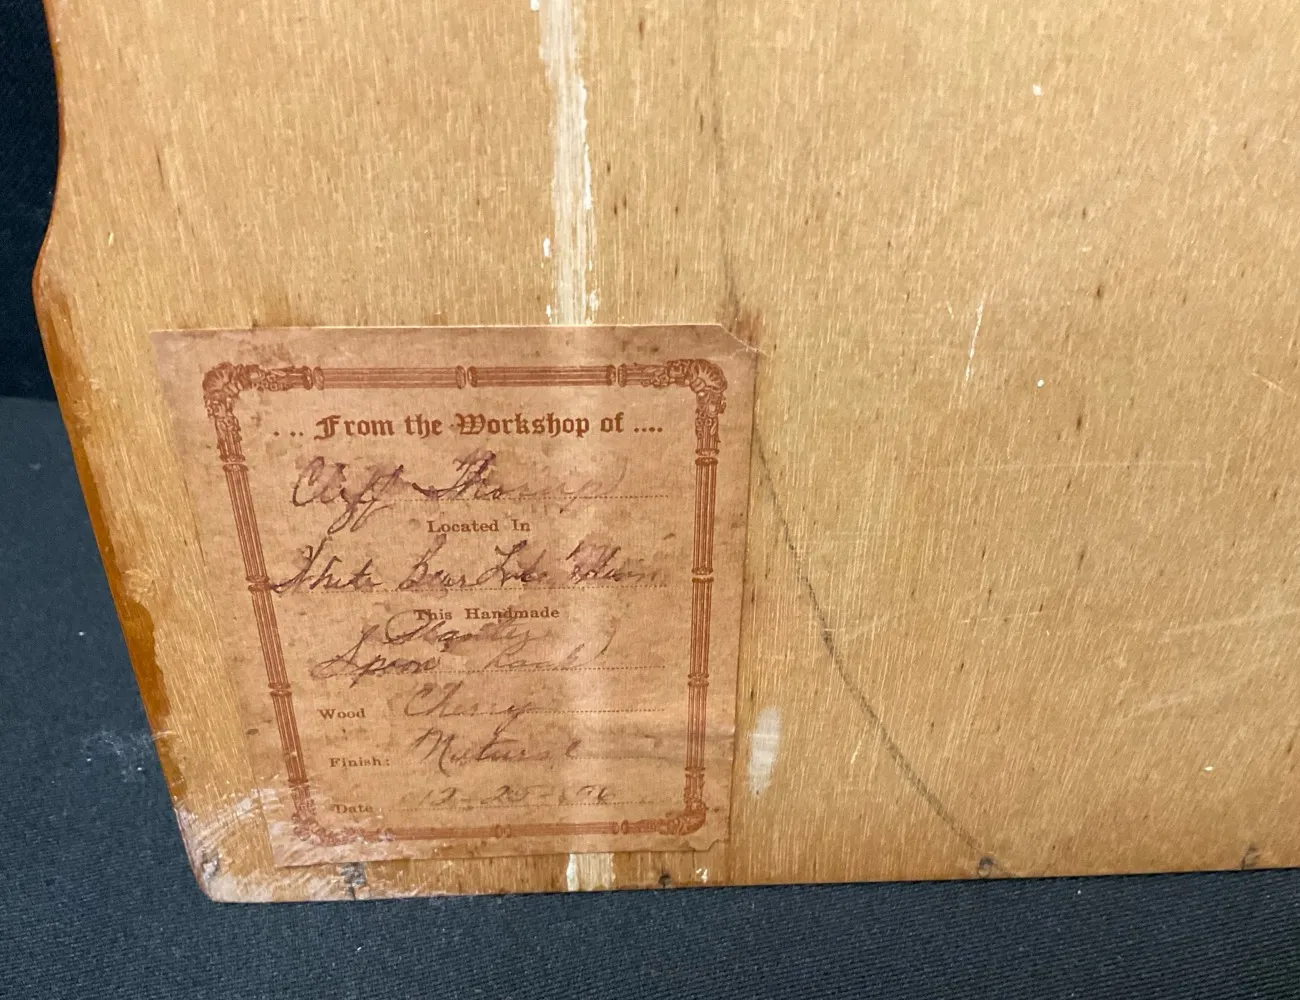 ... From the Workshop of ....
Cliff
Located In
White Bear Lake Minn
This Handmade
Spoon Rack
Wood Cherry
Finish: Natural
Date 12-25-